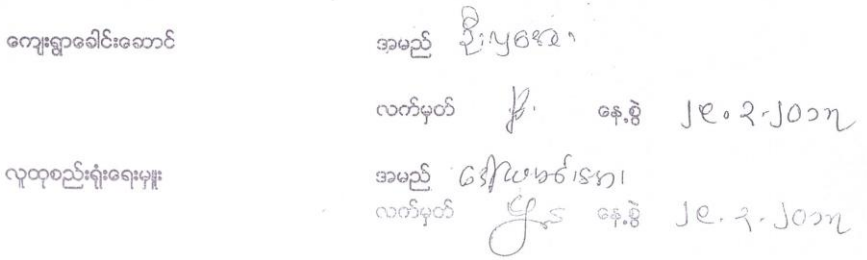 ကျေးရွာခေါင်းဆောင် အမည် ဦး
လက်မှတ် နေ့စွဲ ၂၉.၃.၂၀၁၇
လူထုစည်းရုံးရေးမှူး အမည် ဒေါ်
လက်မှတ် နေ့စွဲ ၂၉.၃.၂၀၁၇